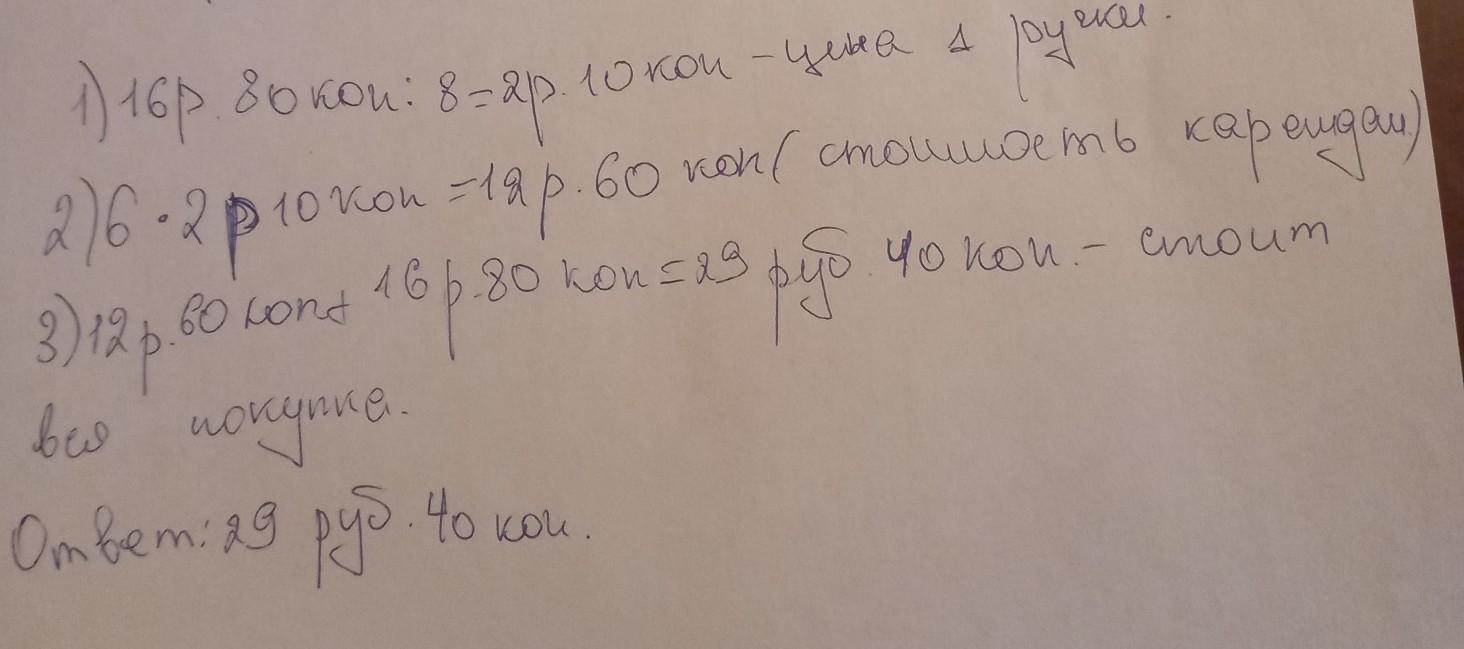 1) 16р. 80 коп : 8 = 2р. 10 коп - цена 1 ручки.
2) 6 · 2 р 10 коп = 12 р. 60 коп ( стоимость карендаш)
3) 12 р. 60 коп + 16 р. 80 коп = 29 руб. 40 коп. - стоит
вся покупка.
Ответ: 29 руб. 40 коп.